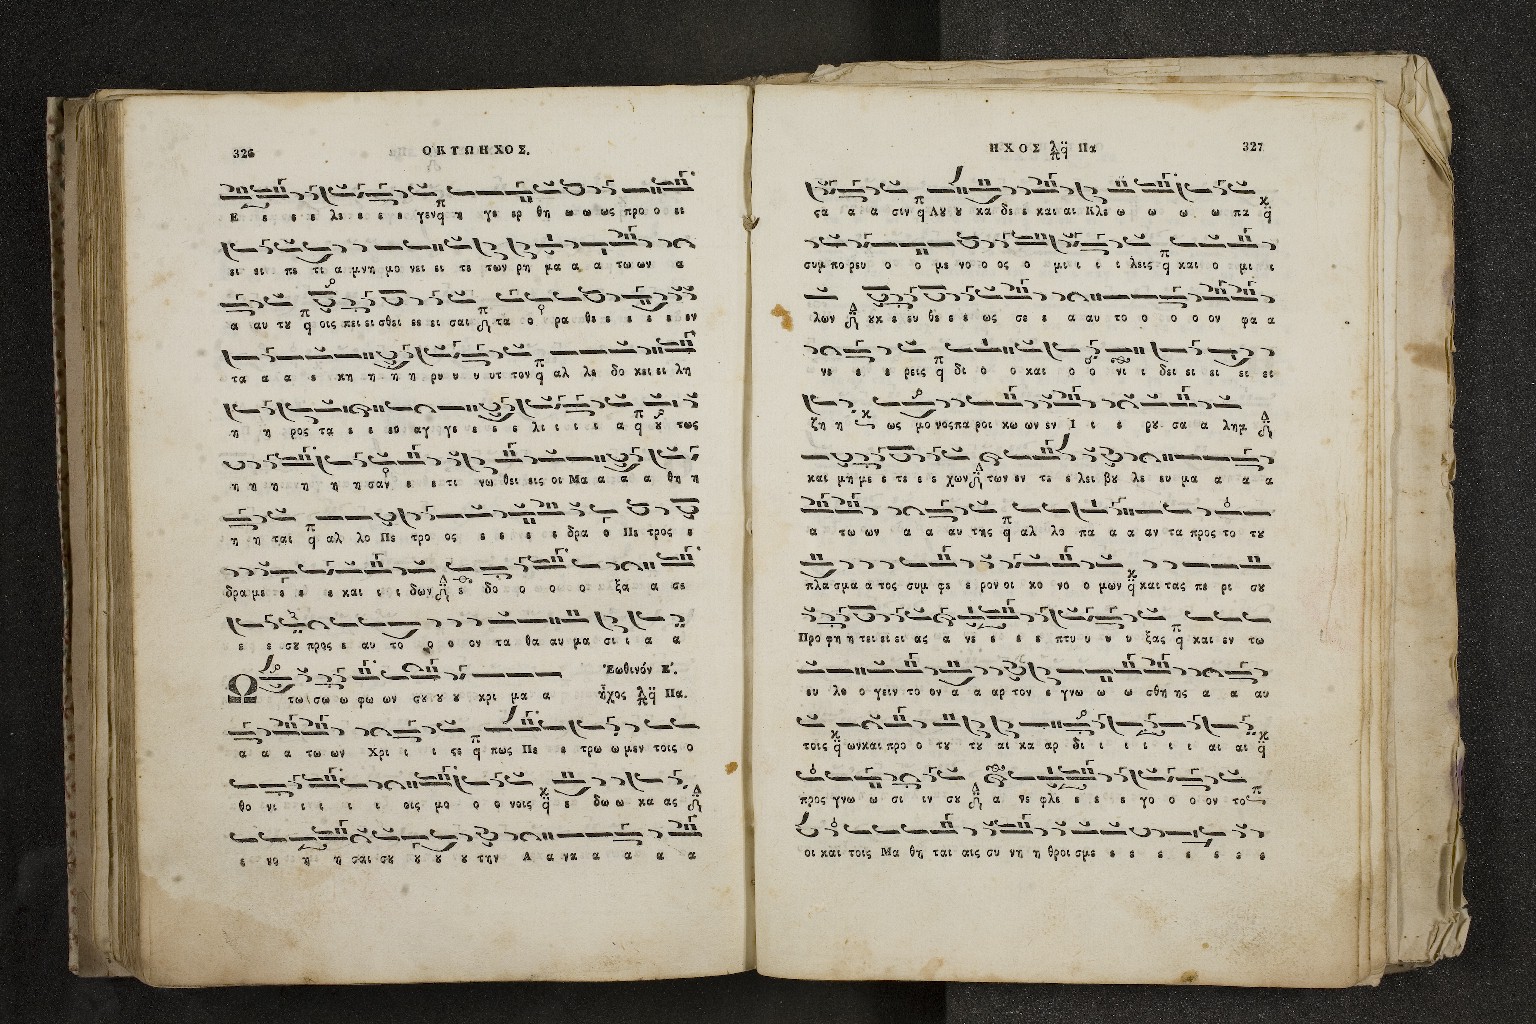 326
ΟΚΤΩΗΧΟΣ.
Ε ε ε ε λε ε ε ε γεν η γε ερ θη ω ω ως προ ο ει
ει ει πε τι α μνη μο νει ει τε των ρη μα α α τω ων α
α αυ τȣ οις πει ει σθει ει ει σαι τα ο ρα θε ε ε ε ε εν
τα α α ε κη η η η ρυ υ υ υτ τον αλ λε δο κει ει λη
η η ρος τα ε ε εν αγ γε ε ε ε λι ι ι ι α ȣ τως
η η η η η η σαν ε ε τι νω θει εις οι Μα α α α θη η
η η ται αλ λο Πε τρο ος ε ε ε ε δρα ο Πε τρος ε
δρα με ε ε ε και ι ι δων ε δο ο ο ο ξα α σε
ε ε σȣ προς ε αυ το ο ο ον τα θα αυ μα σι ι α α
Ἑωθινόν Σ΄.
Ω τω σω ω φω ων σȣ ȣ ȣ κρι μα α
ἦχος Πα.
α α α τω ων Χρι ι ι ςε πως Πε ε τρω ω μεν τοις ο
θο νι ι ι ι ι οις μο ο ο νοις ε δω ω κα ας
ε νο η η σαι σȣ ȣ ȣ ȣ την Α α να α α α α
ΗΧΟΣ Πα
327
ςα α α σιν Λȣ ȣ κα δε ε και αι Κλε ω ω ω ω πα
συμ πο ρευ ο ο με νο ο ος ο μι ι ι ι λεις και ο μι ι
λων ȣκ ε ευ θε ε ε ως σε ε α αυ το ο ο ο ον φα α
νε ε ε ρεις δι ο ο και ο ο νι ι δει ει ει ει ει
ζη η ως μο νος πα ροι κω ων εν Ι ι ε ρȣ σα α λημ
και μη με ε τε ε ε χων των εν τε ε λει βȣ λε ευ μα α α α
α τω ων α α αυ της αλ λο πα α α αν τα προς το τȣ
πλα σμα α τος συμ φε ε ρον οι κο νο ο μων και τας πε ρι σȣ
Προ φη η τει ει ει ας α νε ε ε ε πτυ υ υ υ ξας και εν τω
ευ λο ο γειν το ον α α αρ τον ε γνω ω ω σθη ης α α αυ
τοις ων και προ ο τȣ τȣ αι κα αρ δι ι ι ι ι ι αι αι
προς γνω ω σι ιν σȣ α νε φλε ε ε ε γο ο ο ον το
οι και τοις Μα θη ται αις συ νη η θροι σμε ε ε ε ε ε ε ε